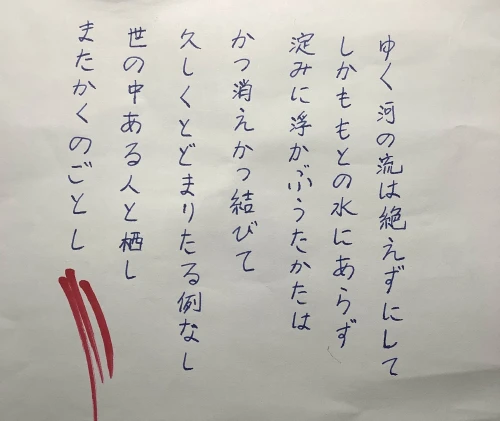 ゆく河の流は絶えずにして
しかももとの水にあらず
淀みに浮かぶうたかたは
かつ消えかつ結びて
久しくとどまりたる例なし
世の中ある人と栖し
またかくのごとし